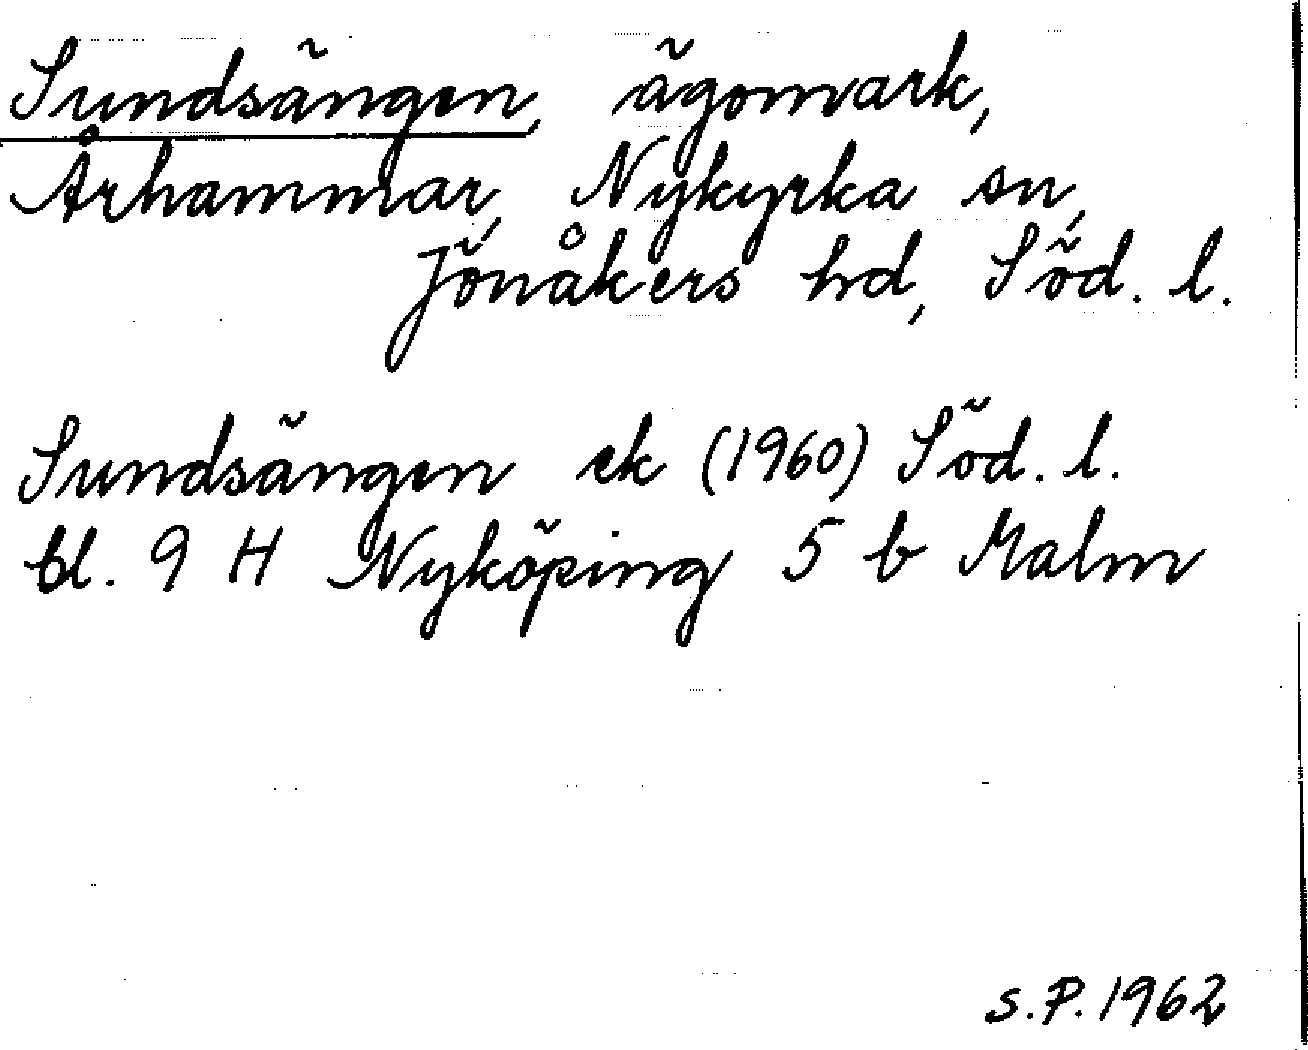 Sundsängen, ägomark,
Århammar, Nykyrka sn,
Jönåkers hd, Söd. l.
Sundsängen ek (1960) Söd. l.
bl. 9 H Nyköping 5 b Malm
S.P. 1962